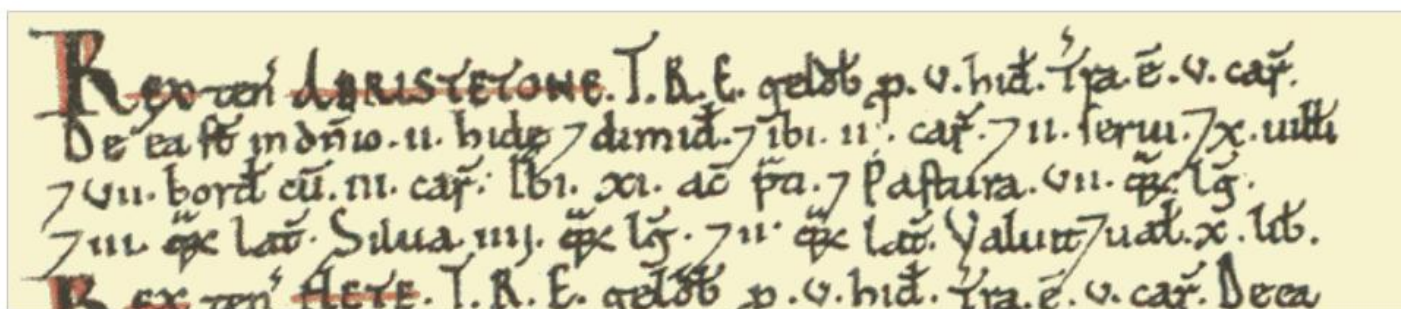 Rex ten' ABRISTETONE. T.R.E. geldb̄ p. v. hid̄. Tr̄a. ē. v. car̄.
De ea st̄ in dn̄io. ii. hidę ⁊ dimid̄. ⁊ ibi. ii. car̄. ⁊ ii. serui. ⁊ x. uilłi
⁊ vii. bord̄ cū. iii. car̄. Ibi. xi. ac̄ p̄a. ⁊ Pastura. vii. q̄ꝝ lḡ.
⁊ iii. q̄ꝝ lat̄. Silua iiij. q̄ꝝ lḡ. ⁊ ii. q̄ꝝ lat̄. Valuit ⁊ ual̄. x. lib̄.
Rex ten' AETE. T.R.E. geldb̄ p. v. hid̄. Tr̄a. ē. v. car̄. De ea